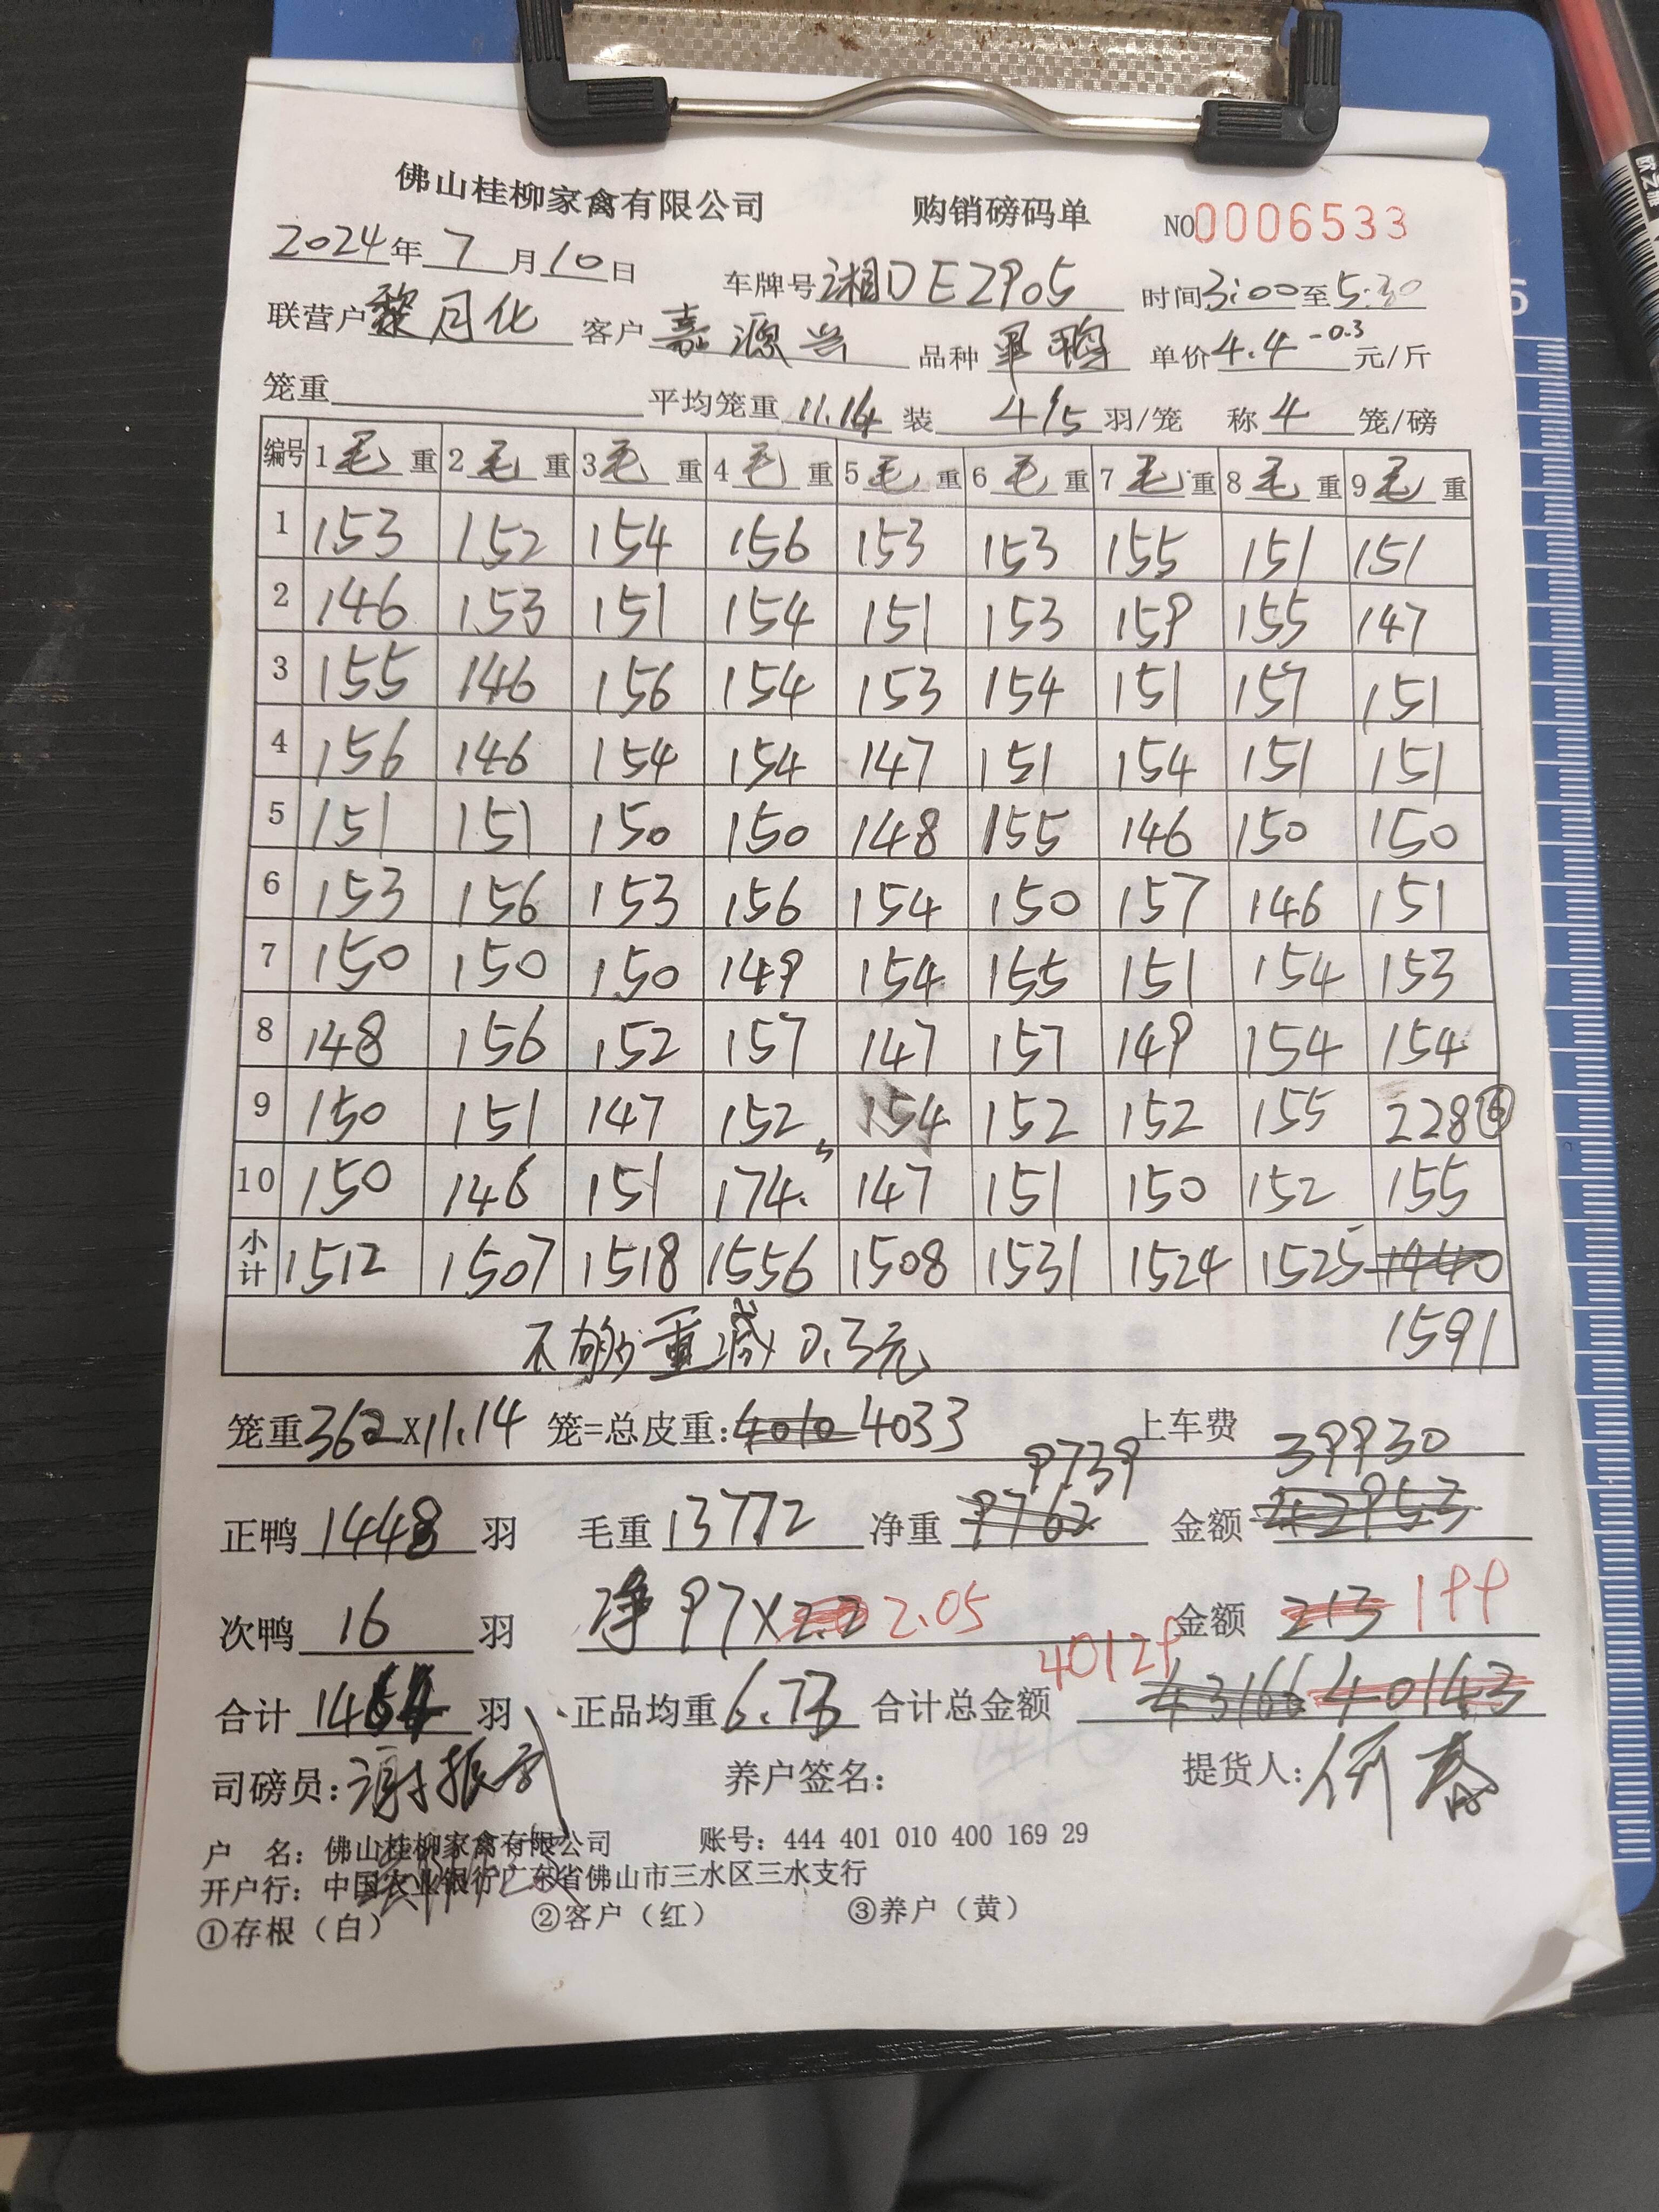 佛山桂柳家禽有限公司 购销磅码单 NO0006533
2024年7月10日 车牌号湘DEZ905 时间3:00至5:30
联营户黎月化 客户嘉源兴 品种 单价4.4-0.3元/斤
笼重 平均笼重11.14装4/5羽/笼 称4笼/磅
编号 1毛重 2毛重 3毛重 4毛重 5毛重 6毛重 7毛重 8毛重 9毛重
1 153 152 154 156 153 153 155 151 151
2 146 153 151 154 151 153 159 155 147
3 155 146 156 154 153 154 151 157 151
4 156 146 154 154 147 151 154 151 151
5 151 151 150 150 148 155 146 150 150
6 153 156 153 156 154 150 157 146 151
7 150 150 150 149 154 155 151 154 153
8 148 156 152 157 147 157 149 154 154
9 150 151 147 152 154 152 152 155 228⑥
10 150 146 151 174 5 147 151 150 152 155
小计 1512 1507 1518 1556 1508 1531 1524 1525 1440
不够重减0.3元 1591
笼重362X11.14笼=总皮重:4010 4033 上车费
9739 39930
正鸭1448羽 毛重13772 净重9762 金额42953
次鸭16羽 净97X2.2 2.05 金额213 199
40129
合计1464羽 正品均重6.73 合计总金额43166 40143
司磅员: 养户签名: 提货人:
户 名:佛山桂柳家禽有限公司 账号:444 401 010 400 169 29
开户行:中国农业银行广东省佛山市三水区三水支行
①存根(白) ②客户(红) ③养户(黄)
欧之雅